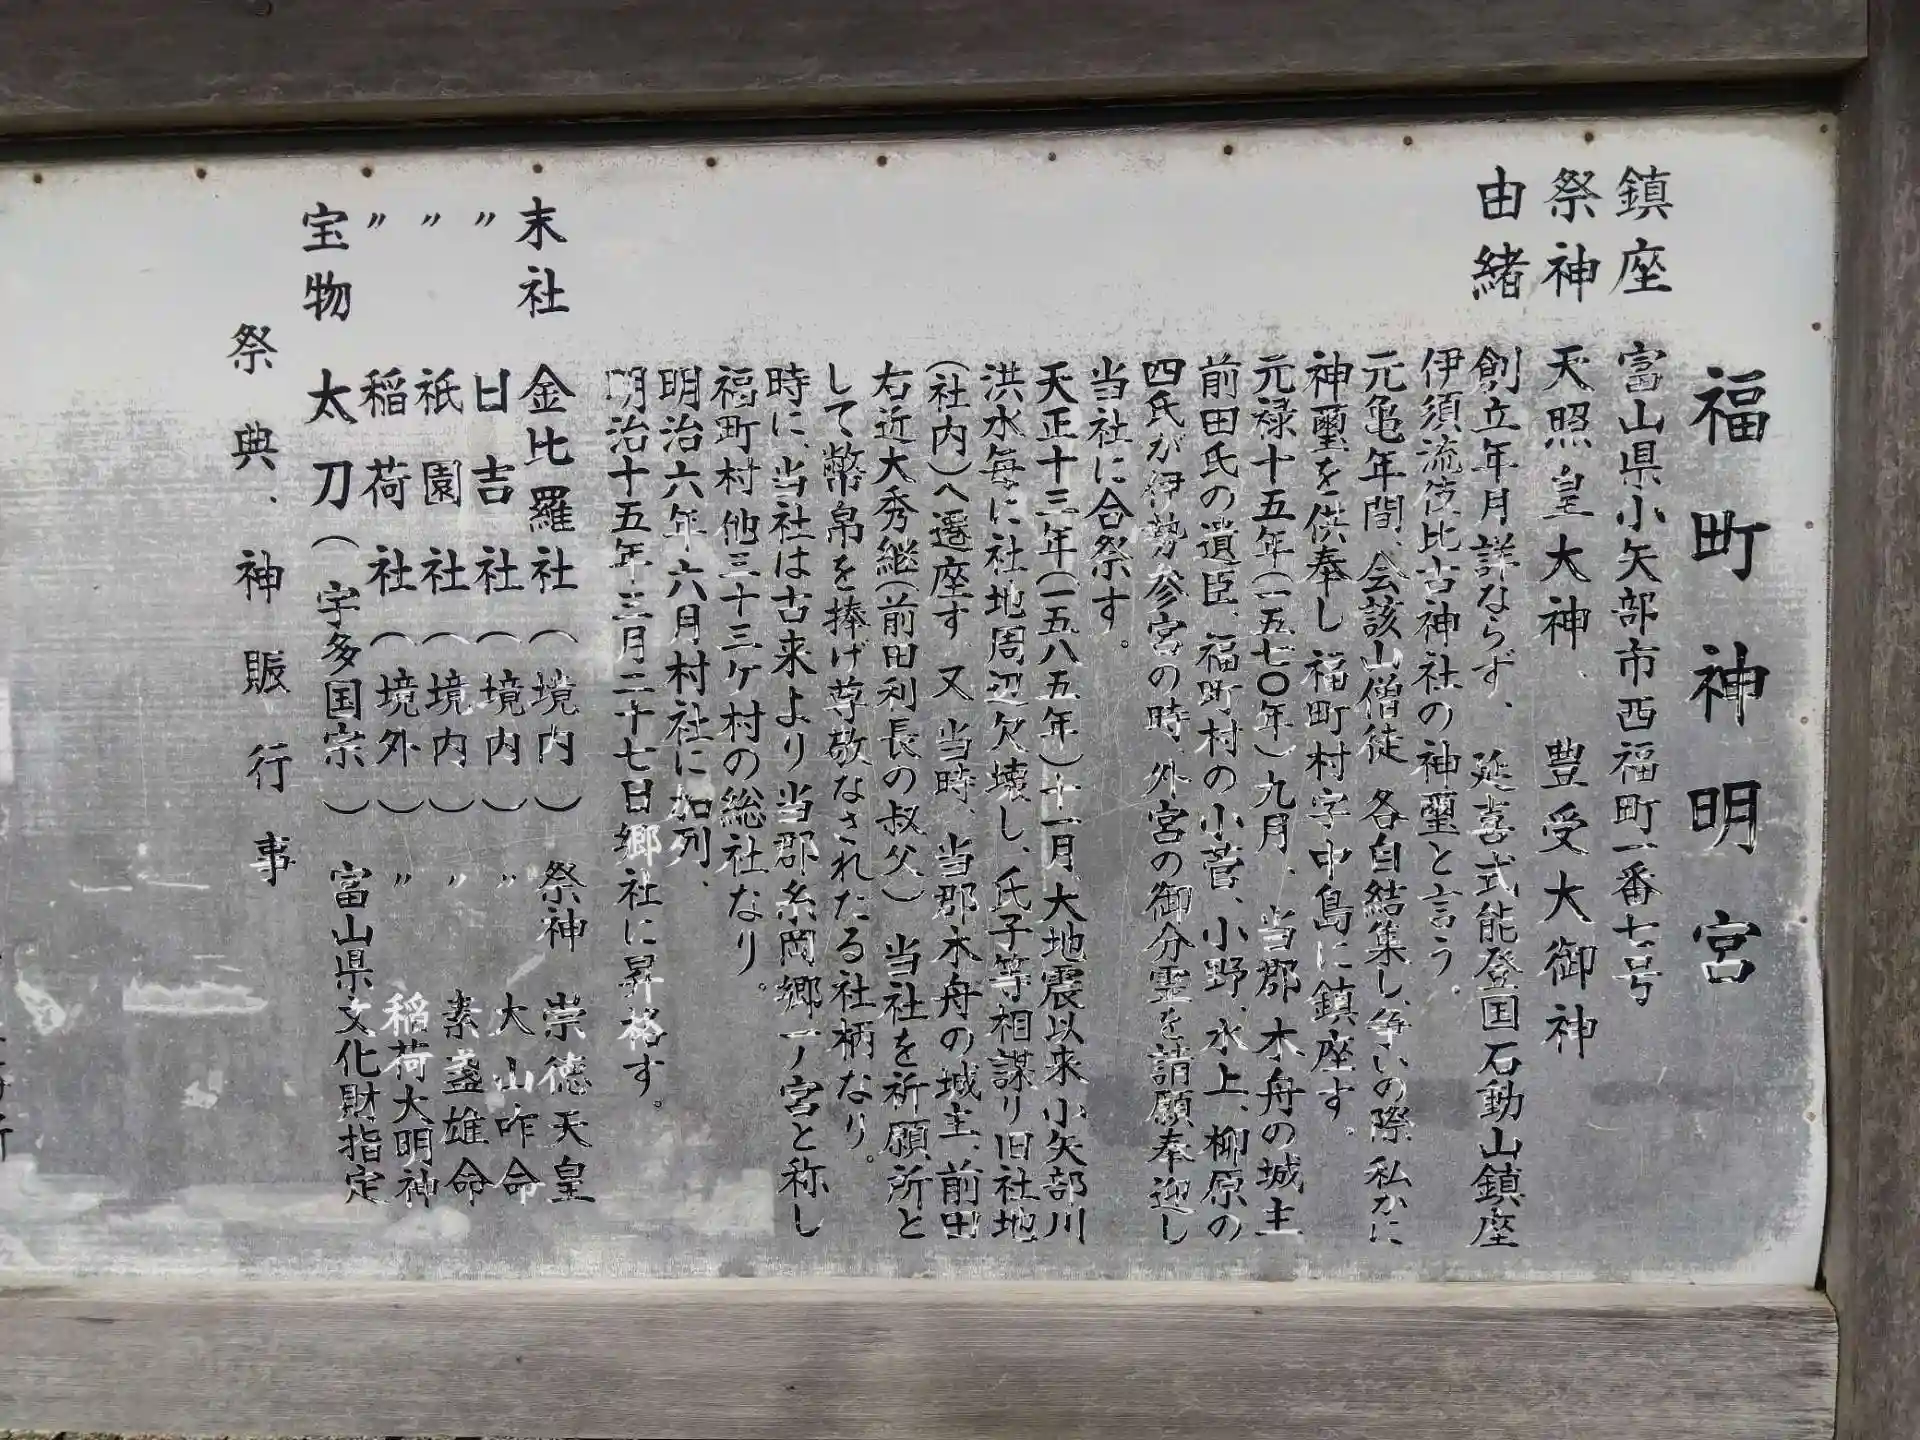 福町神明宮
鎮座　富山県小矢部市西福町一番七号
祭神　天照皇大神、豊受大御神
由緒　創立年月詳ならず、延喜式能登国石動山鎮座
伊須流伎比古神社の神璽と言う。
元亀年間、会該山僧徒　各自結集し、争いの際　私かに
神璽を供奉し　福町村字中島に鎮座す。
元禄十五年(一五七〇年)九月、当郡　木舟の城主
前田氏の遺臣、福町村の小菅、小野、水上、柳原の
四氏が伊勢参宮の時、外宮の御分霊を請願奉迎し
当社に合祭す。
天正十三年(一五八五年)十一月、大地震以来　小矢部川
洪水毎に社地周辺欠壊し、氏子等相謀り旧社地
(社内)へ遷座す　又　当時、当郡　木舟の城主、前田
右近大秀継(前田利長の叔父)　当社を祈願所と
して幣帛を捧げ尊敬なされたる社柄なり。
時に、当社は古来より当郡糸岡郷一ノ宮と称し
福町村他三十三ヶ村の総社なり。
明治六年六月村社に加列、
明治十五年三月二十七日郷社に昇格す。
末社　金比羅社(境内)　祭神　崇徳天皇
〃　日吉社(境内)　〃　大山咋命
〃　祇園社(境内)　〃　素盞雄命
〃　稲荷社(境外)　〃　稲荷大明神
宝物　太刀(宇多国宗)　富山県文化財指定
祭典、神賑行事